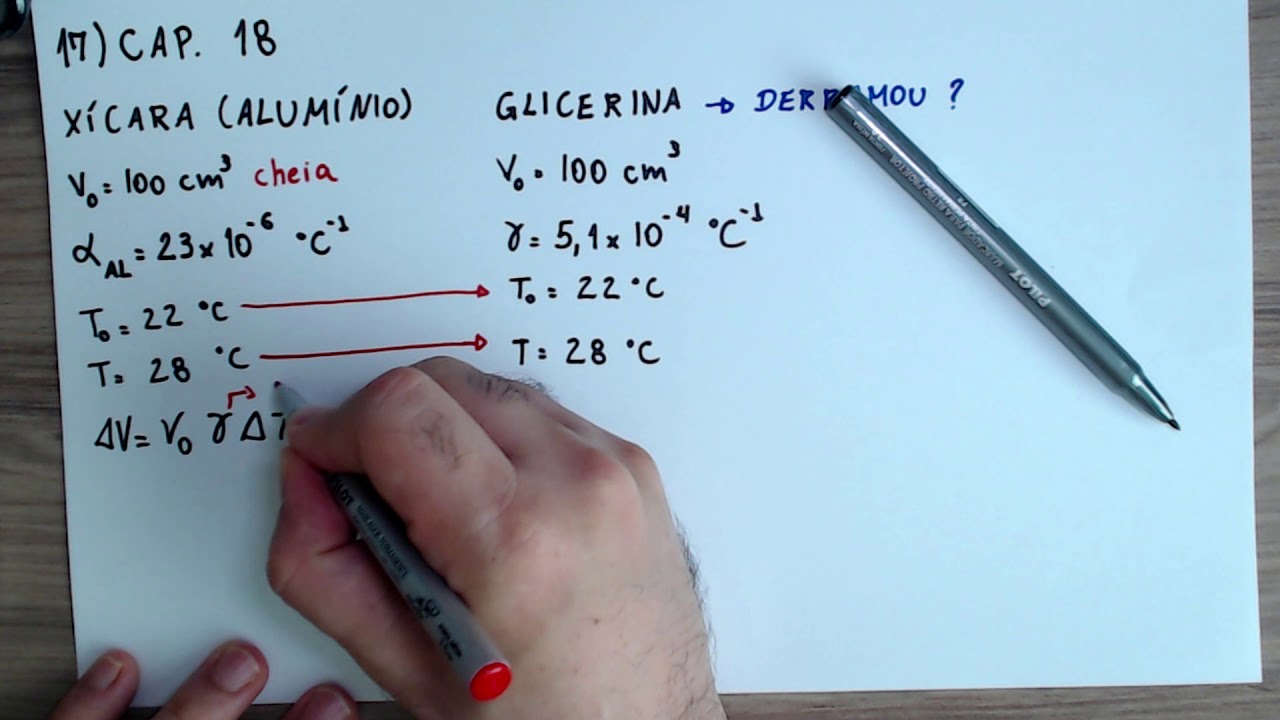 17) CAP. 18
XÍCARA (ALUMÍNIO)
V₀ = 100 cm³ cheia
α_AL = 23 × 10⁻⁶ °C⁻¹
T₀ = 22 °C →
T = 28 °C →
ΔV = V₀ γ Δ
GLICERINA →
V₀ = 100 cm³
γ = 5,1 × 10⁻⁴ °C⁻¹
T₀ = 22 °C
T = 28 °C
PILOT